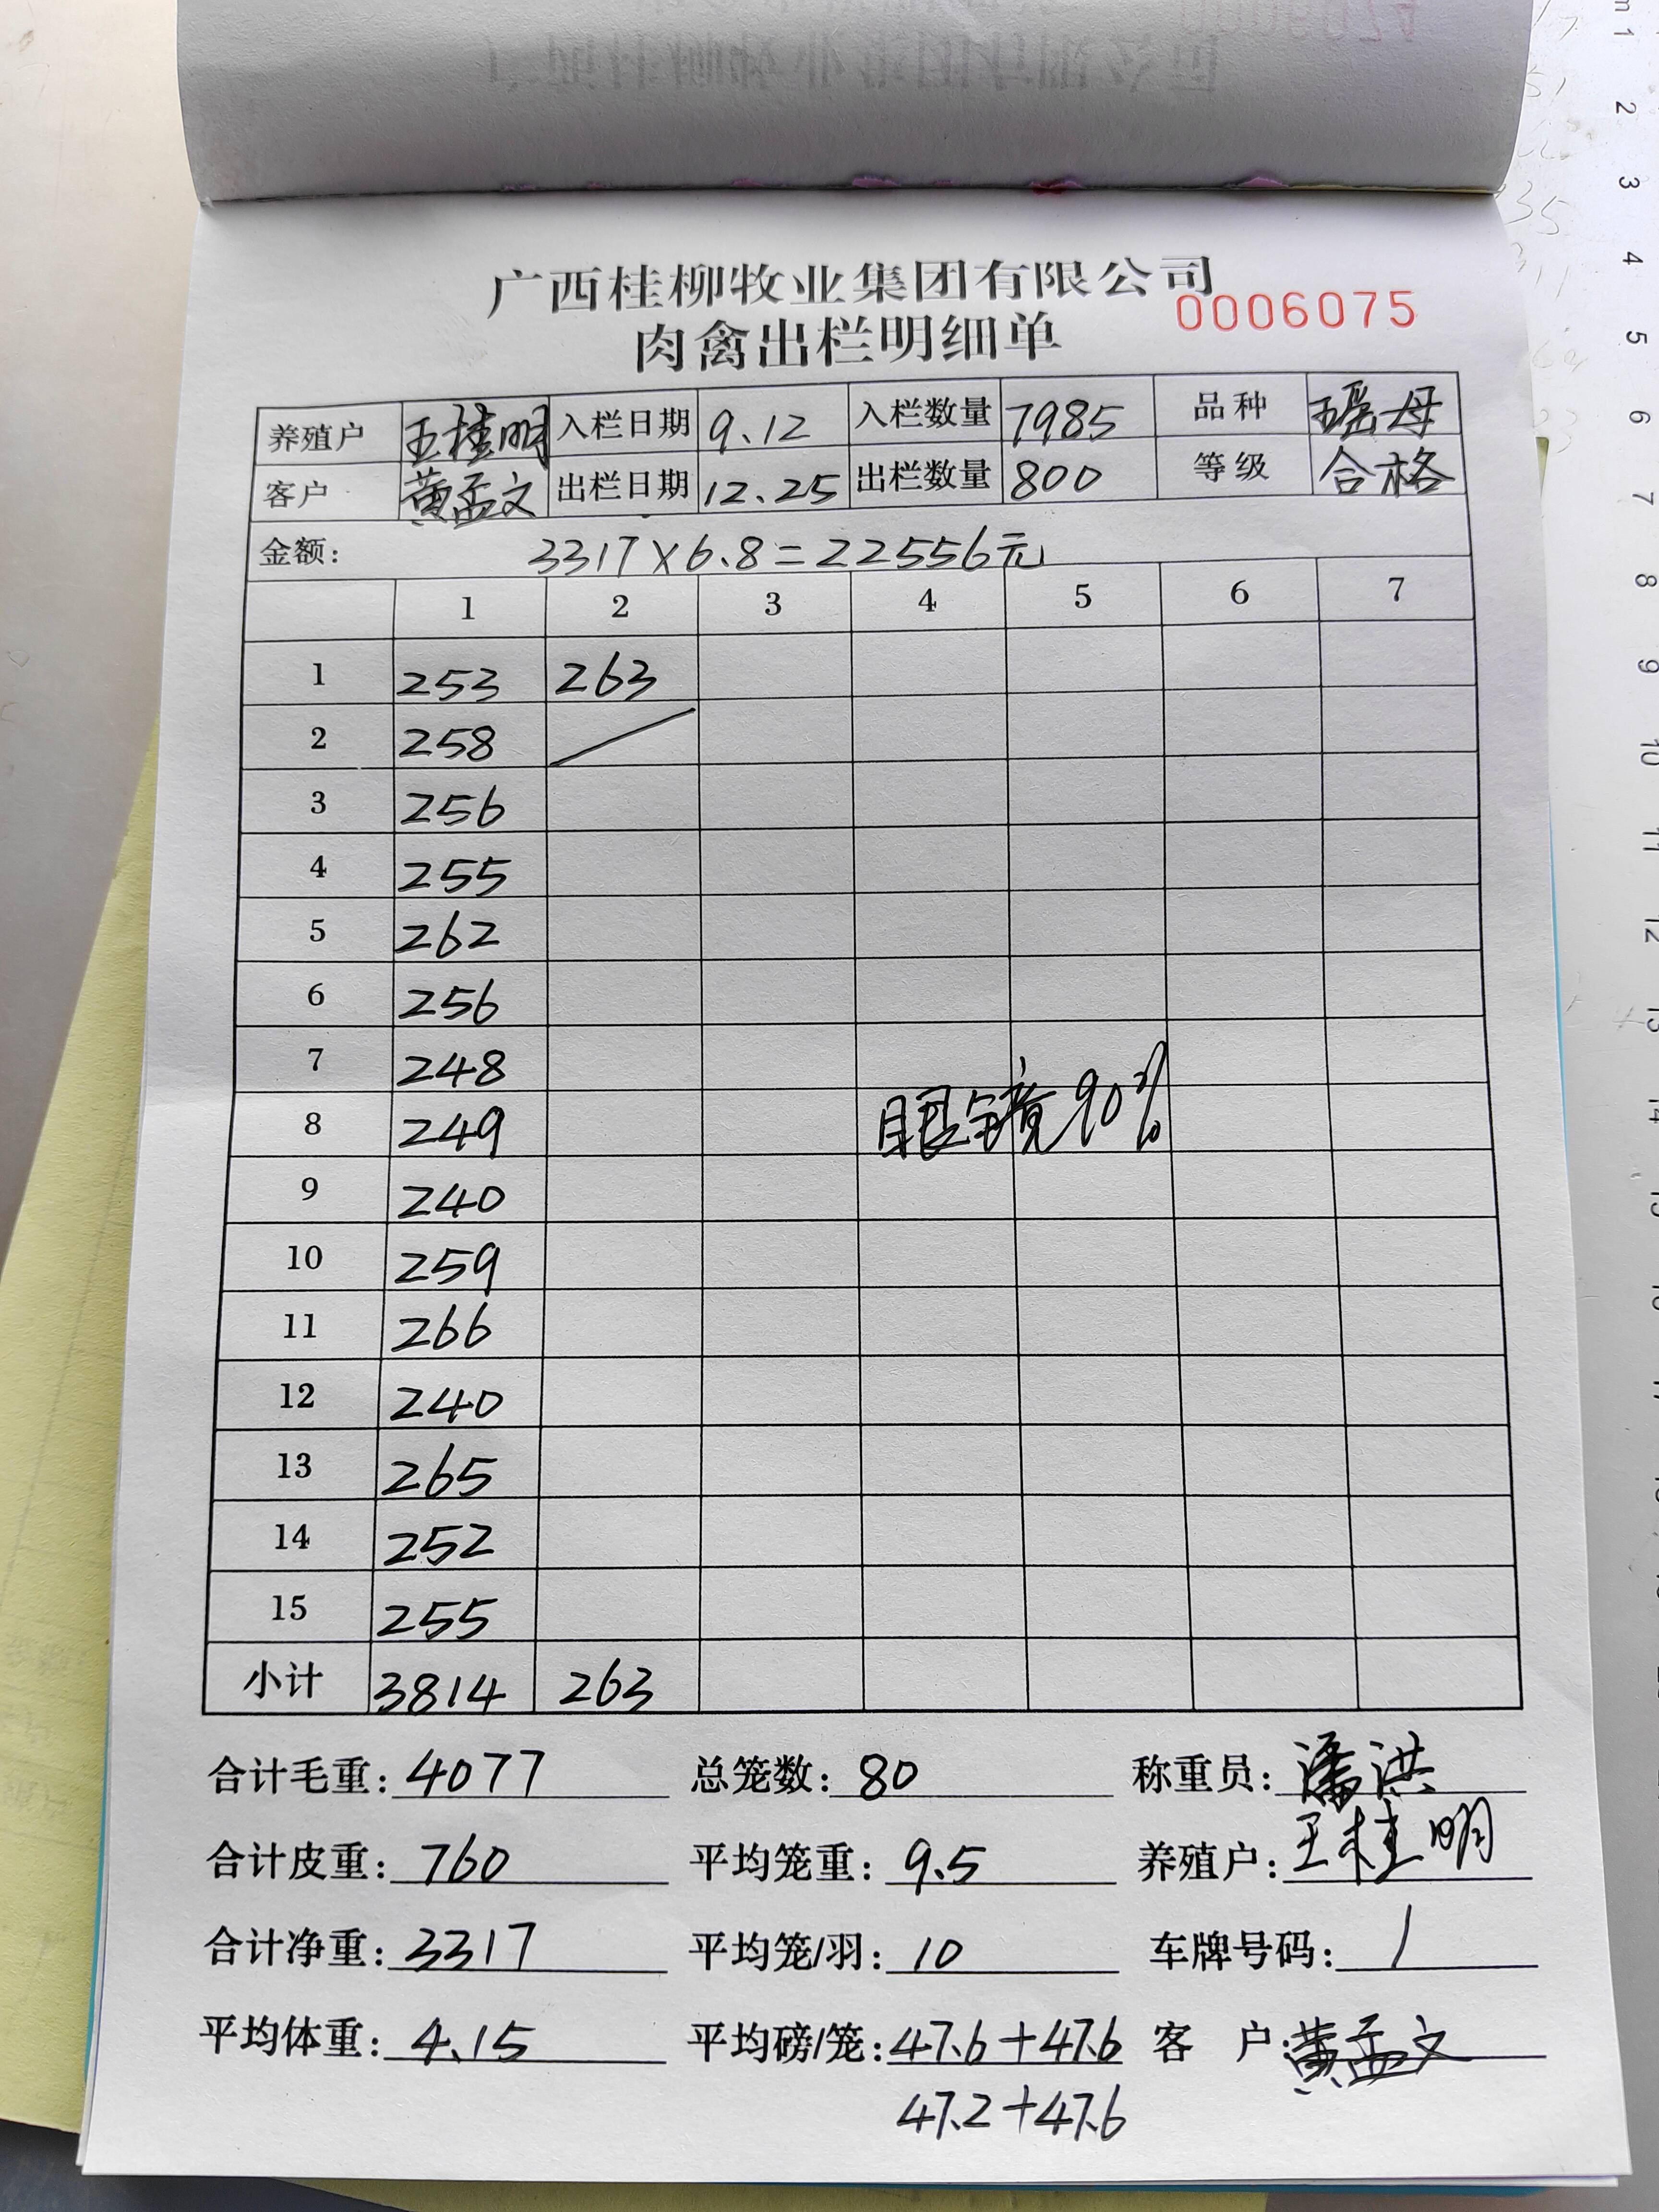 广西桂柳牧业集团有限公司
0006075
肉禽出栏明细单
养殖户 王桂明 入栏日期 9.12 入栏数量 7985 品种 瑶母
客户 黄孟文 出栏日期 12.25 出栏数量 800 等级 合格
金额: 3317×6.8=22556元
1 2 3 4 5 6 7
1 253 263
2 258
3 256
4 255
5 262
6 256
7 248
8 249 眼镜90%
9 240
10 259
11 266
12 240
13 265
14 252
15 255
小计 3814 263
合计毛重: 4077 总笼数: 80 称重员: 潘洪
合计皮重: 760 平均笼重: 9.5 养殖户: 王桂明
合计净重: 3317 平均笼/羽: 10 车牌号码: /
平均体重: 4.15 平均磅/笼: 47.6+47.6 客 户: 黄孟文
47.2+47.6